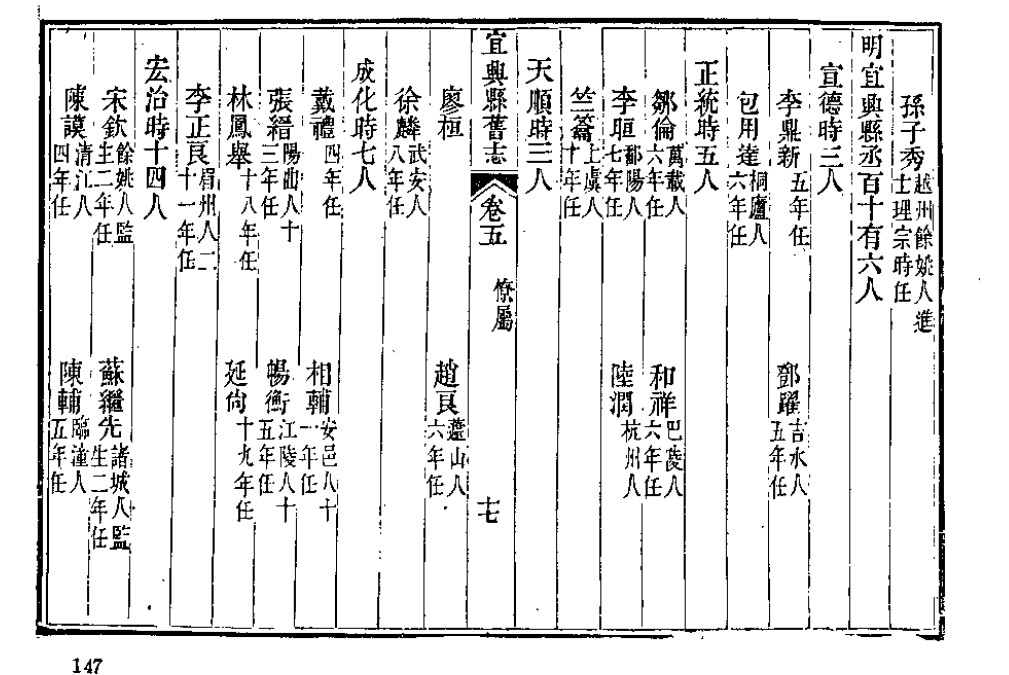 孫子秀 越州餘姚人進士理宗時任
明宜興縣丞百十有六人
宣德時三人
李鼎新 五年任 鄧躍 吉水人五年任
包用達 桐廬人六年任
正統時五人
鄒倫 萬載人六年任 和祥 巴陵人六年任
李恒 鄱陽人七年任 陸潤 杭州人
竺籥 上虞人十年任
天順時三人
宜興縣舊志 卷五 僚屬 十七
廖桓 趙良 蘆山人六年任
徐麟 武安人八年任
成化時七人
戴禮 四年任 相輔 安邑人十一年任
張縉 陽曲人十三年任 暢衡 江陵人十五年任
林鳳舉 十八年任 延尙 十九年任
李正良 眉州人二十一年任
宏治時十四人
宋欽 餘姚人監生二年任 蘇繼先 諸城人監生二年任
陳謨 清江人四年任 陳輔 臨潼人五年任
147